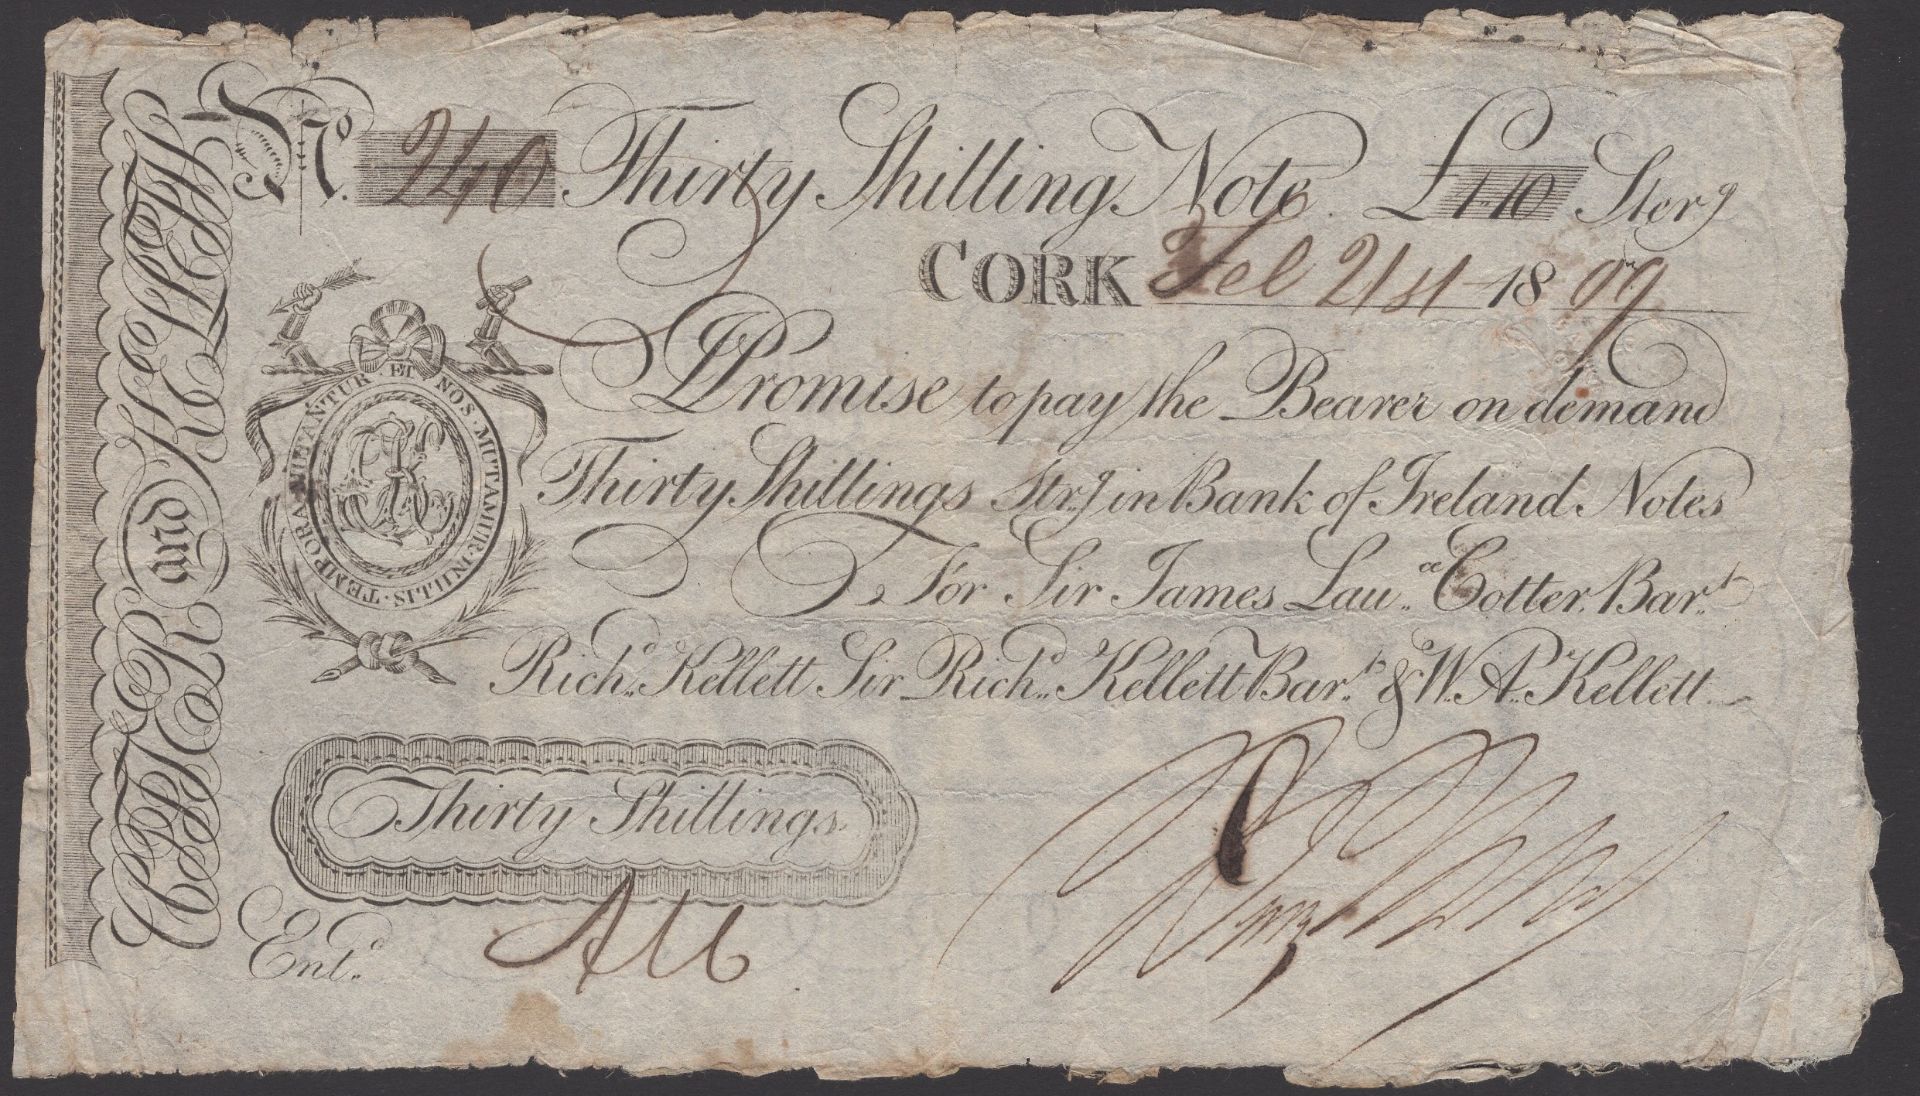 COTTER and KELLETT
No. 240 Thirty Shilling Note. £1.10 Sterg
CORK Feb 21st 1809
I Promise to pay the Bearer on demand
Thirty Shillings Str.g in Bank of Ireland Notes
For Sir James Lau.ce Cotter Bar.t
Rich.d Kellett Sir Rich.d Kellett Bar.t & W. A. Kellett
TEMPORA MUTANTUR ET NOS MUTAMUR IN ILLIS
Thirty Shillings
Ent.d